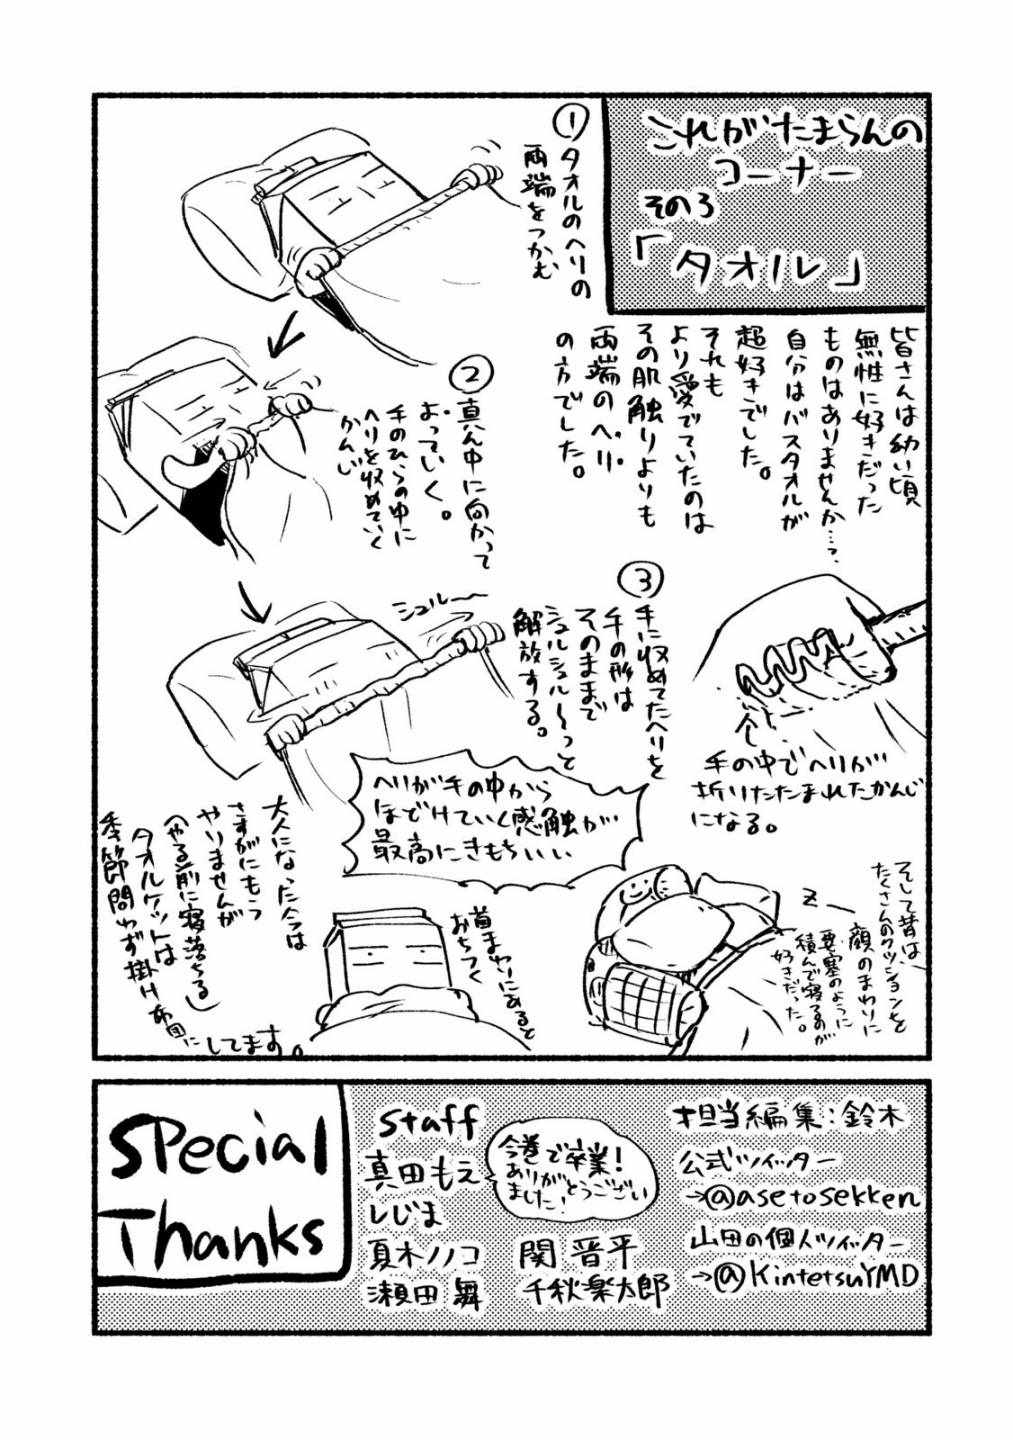 これがたまらんの
コーナー
その3
「タオル」
皆さんは幼い頃
無性に好きだった
ものはありませんか…?
自分はバスタオルが
超好きでした。
それも
より愛でていたのは
その肌触りよりも
両端のヘリ
の方でした。
①タオルのヘリの
両端をつかむ
②真ん中に向かって
よっていく。
手のひらの中に
ヘリを収めていく
かんじ
手の中でヘリが
折りたたまれたかんじ
になる。
③手に収めてたヘリを
手の形は
そのままで
シュルシュル〜っと
解放する。
シュルー
ヘリが手の中から
ほどけていく感触が
最高にきもちいい
そして昔は
たくさんのクッションを
顔のまわりに
要塞のように
積んで寝るのが
好きだった。
z
首まわりにあると
おちつく
大人になった今は
さすがにもう
やりませんが
(やる前に寝落ちる)
タオルケットは
季節問わず掛け布団に
してます。
Special
Thanks
Staff
真田もえ
しじま
夏木ノノコ
瀬田舞
今巻で卒業!
ありがとうござい
ました!
関晋平
千秋楽太郎
担当編集:鈴木
公式ツイッター
→@asetosekken
山田の個人ツイッター
→@KintetsuYMD